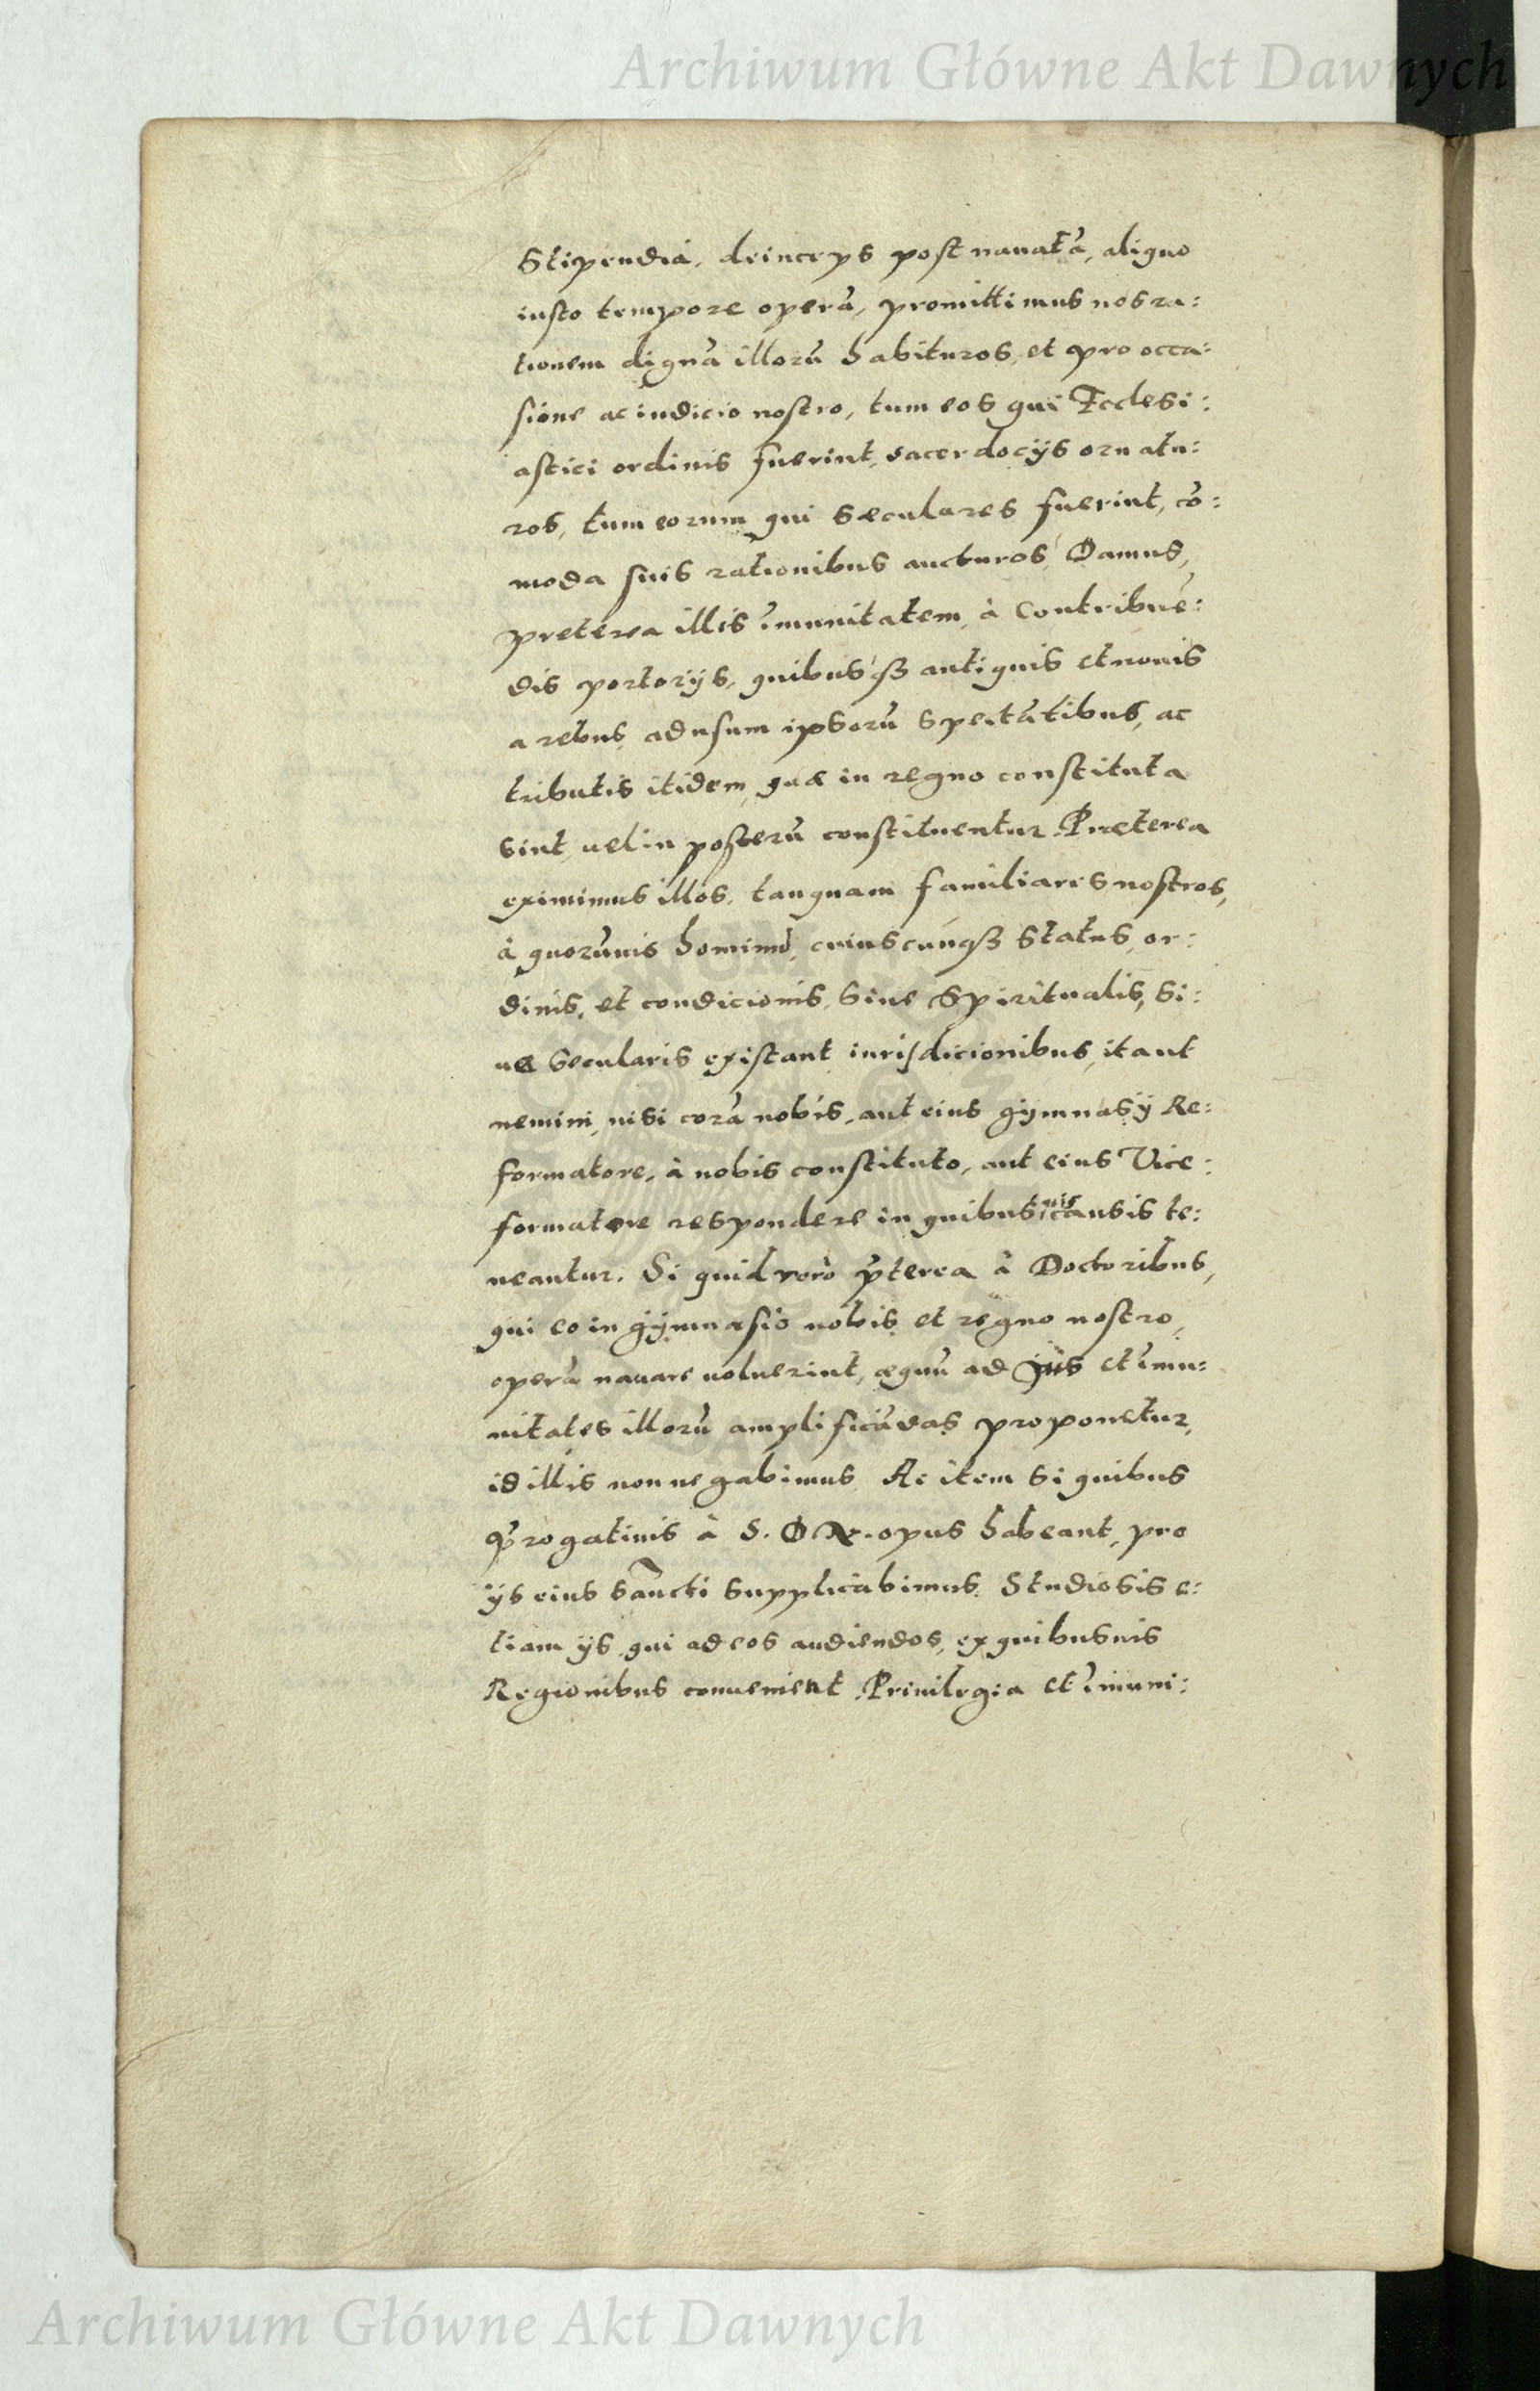 Archiwum Główne Akt Dawnych
Stipendia, deinceps post nauatã, aliquo
iusto tempore operã, promittimus nos ra:
tionem dignã illorũ habituros, et pro occa:
sione ac iudicio nostro, tum eos qui Ecclesi:
astici ordinis fuerint, sacerdocijs ornatu:
ros, tum eorum qui sæculares fuerint, cõ:
moda suis rationibus aucturos, Damus,
preterea illis ĩmunitatem, à Contribuẽ:
dis portorijs, quibusqȝ antiquis et nouis
a rebus, ad usum ipsorũ spectãtibus, ac
tributis itidem, quæ in regno constituta
sint, uel in posterũ constituentur. Præterea
eximimus illos, tanquam familiares nostros,
à quorũuis hominũ, cuiuscunqȝ status, or:
dinis, et condicionis, siue spiritualis, si:
ue secularis existant iurisdicionibus, ita ut
nemini, nisi corã nobis, aut eius gymnasij Re:
formatore, à nobis constituto, aut eius Vice:
formatore respondere in quibusuis causis te:
neantur. Si quid verò p̃terea à Doctoribus,
qui eo in gymnasio nobis et regno nostro,
operã nauare uoluerint, æquũ ad jus et ĩmu:
nitates illorũ amplificãdas proponetur,
id illis non negabimus. Ac item si quibus
p̃rogatiuis à S. D N. opus habeant, pro
ijs eius sancti supplicabimus. Studiosis e:
tiam ijs qui ad eos audiendos, ex quibusuis
Regionibus conuenient Priuilegia et ĩmuni:
Archiwum Główne Akt Dawnych